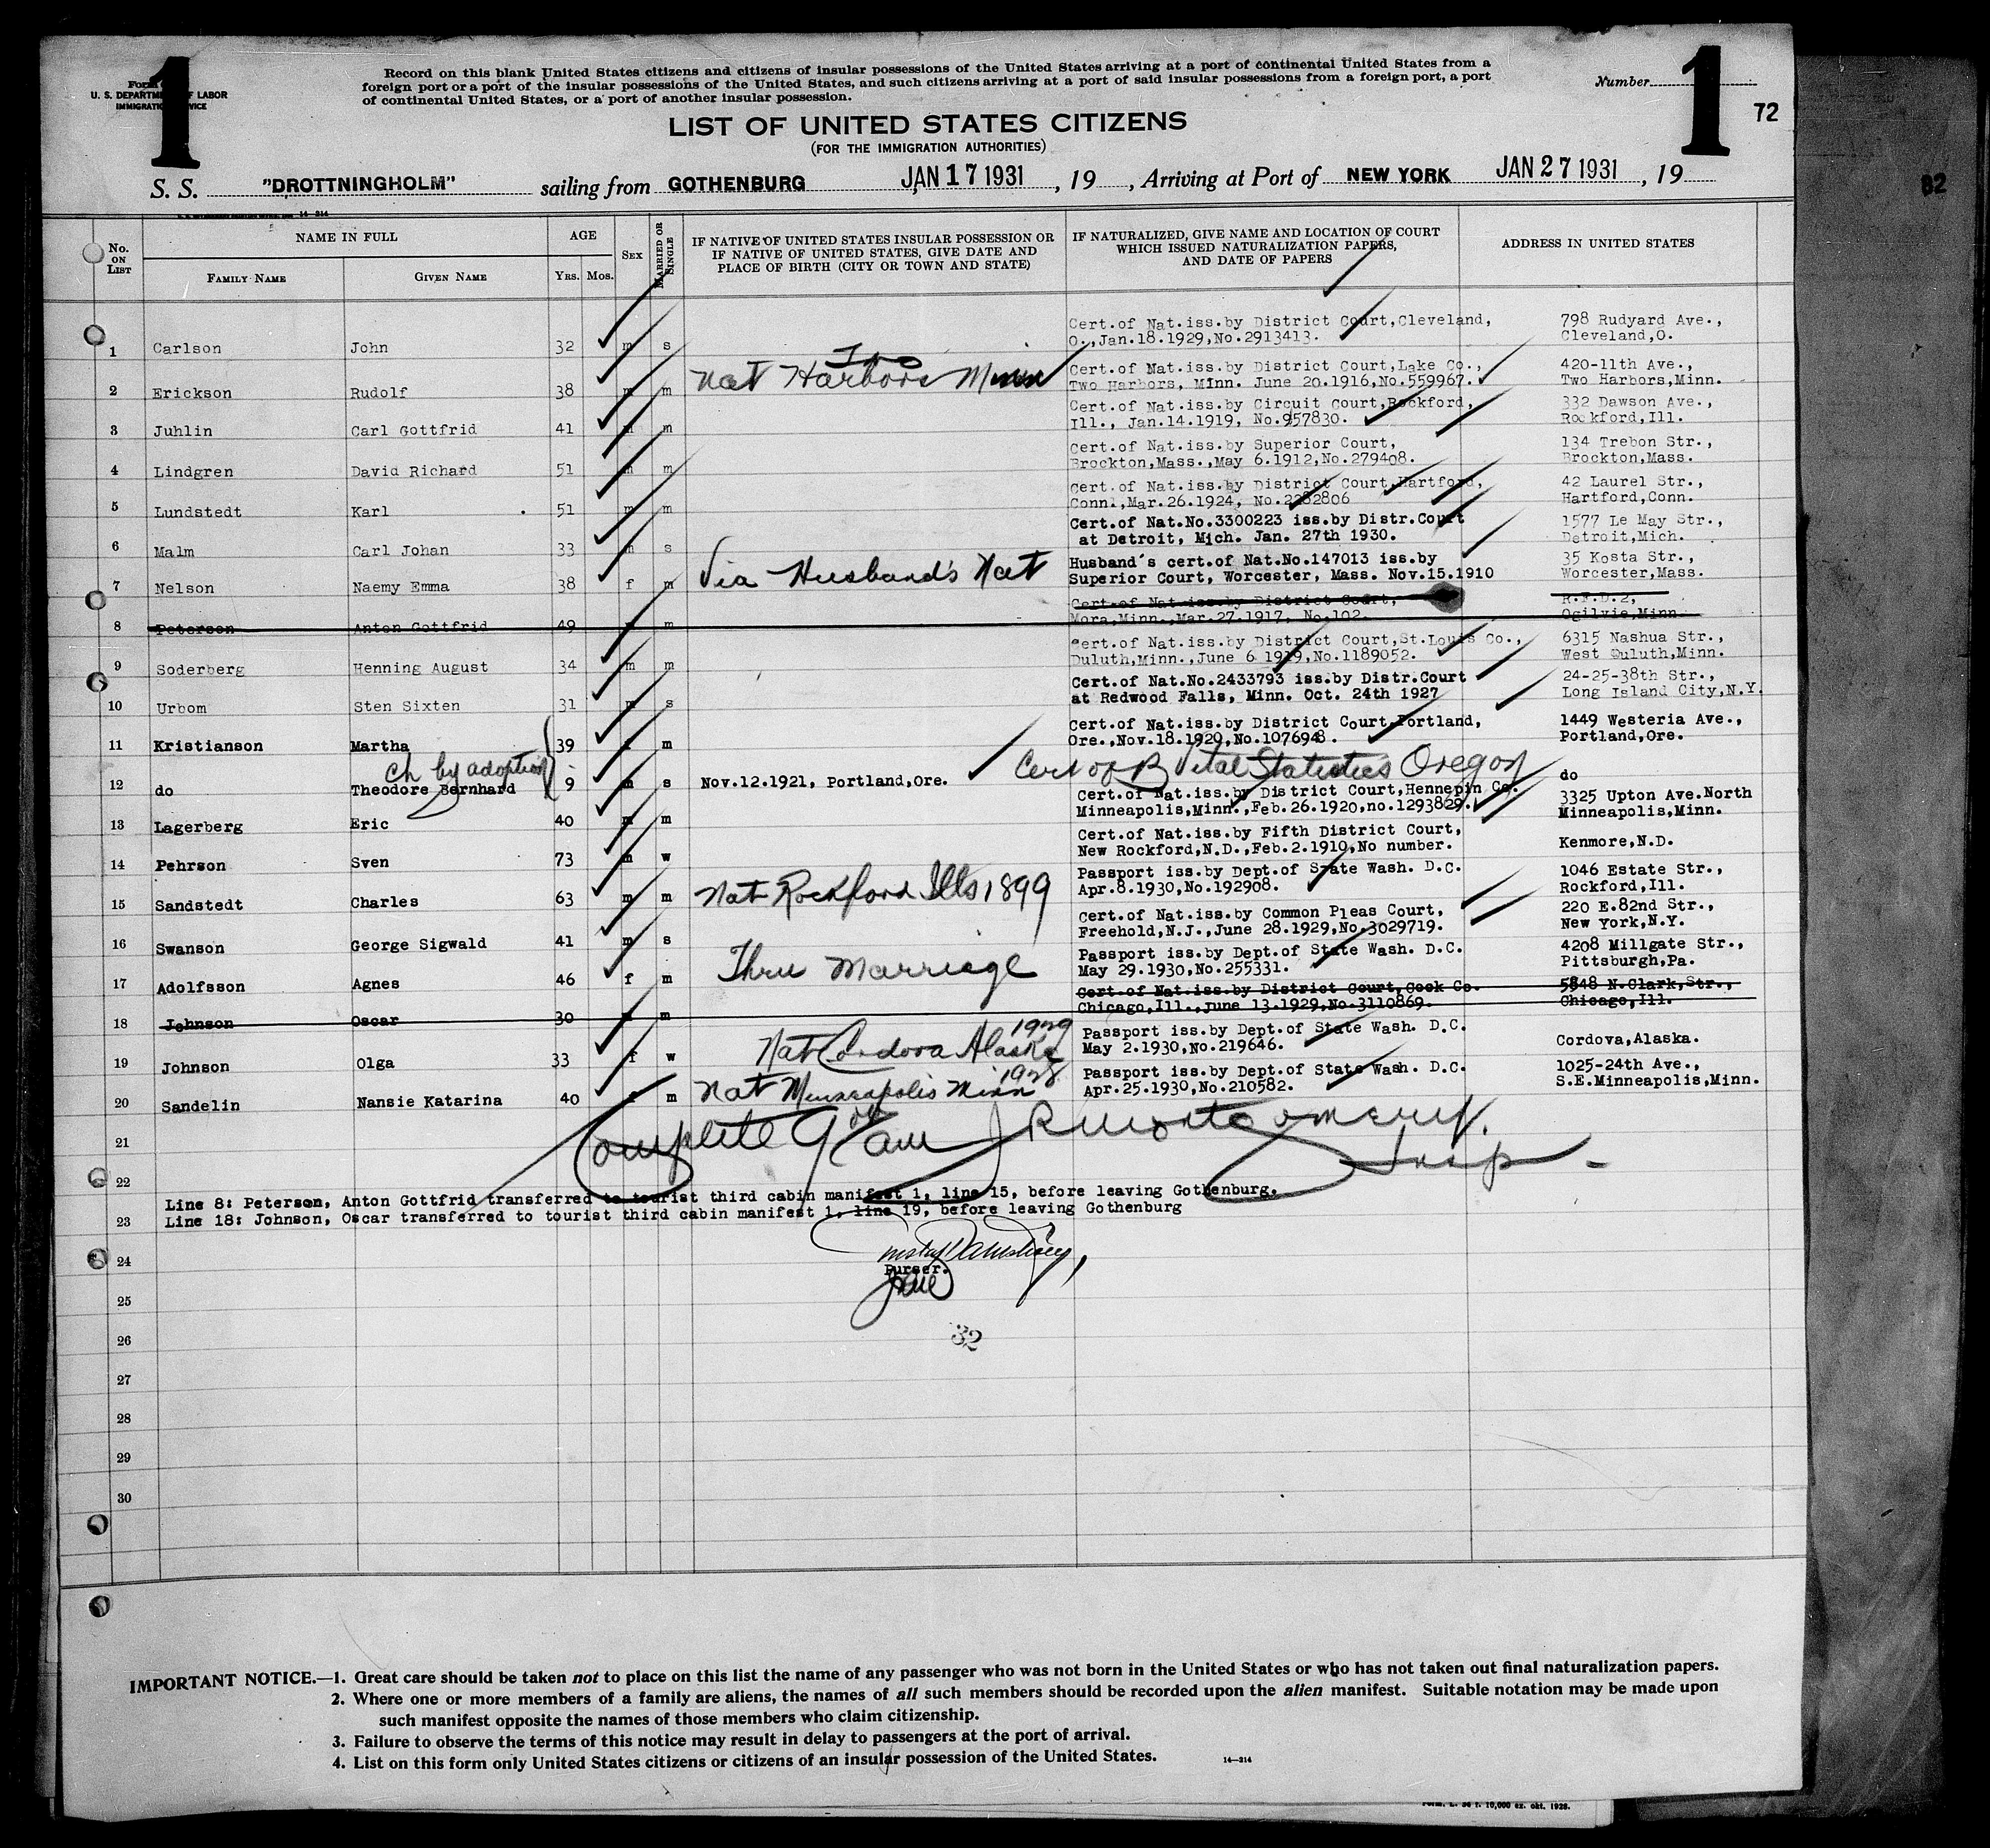 1
1
Form
U. S. DEPARTMENT OF LABOR
IMMIGRATION SERVICE
Record on this blank United States citizens and citizens of insular possessions of the United States arriving at a port of continental United States from a
foreign port or a port of the insular possessions of the United States, and such citizens arriving at a port of said insular possessions from a foreign port, a port
of continental United States, or a port of another insular possession.
Number
72
82
LIST OF UNITED STATES CITIZENS
(FOR THE IMMIGRATION AUTHORITIES)
S. S. "DROTTNINGHOLM" sailing from GOTHENBURG JAN 17 1931, 19 , Arriving at Port of NEW YORK JAN 27 1931, 19
14-214
No. ON LIST
NAME IN FULL
FAMILY NAME GIVEN NAME
AGE
YRS. MOS.
SEX
MARRIED OR SINGLE
IF NATIVE OF UNITED STATES INSULAR POSSESSION OR
IF NATIVE OF UNITED STATES, GIVE DATE AND
PLACE OF BIRTH (CITY OR TOWN AND STATE)
IF NATURALIZED, GIVE NAME AND LOCATION OF COURT
WHICH ISSUED NATURALIZATION PAPERS,
AND DATE OF PAPERS
ADDRESS IN UNITED STATES
Cert.of Nat.iss.by District Court,Cleveland, 798 Rudyard Ave.,
O.,Jan.18.1929,No.2913413. Cleveland,O.
1 Carlson John 32 m s
Two
Nat Harbors Minn
Cert.of Nat.iss.by District Court,Lake Co., 420-11th Ave.,
Two Harbors, Minn. June 20.1916,No.559967. Two Harbors,Minn.
2 Erickson Rudolf 38 m m
Cert.of Nat.iss.by Circuit Court,Rockford, 332 Dawson Ave.,
Ill., Jan.14.1919, No.957830. Rockford,Ill.
3 Juhlin Carl Gottfrid 41 m m
Cert.of Nat.iss.by Superior Court, 134 Trebon Str.,
Brockton,Mass.,May 6.1912,No.279408. Brockton,Mass.
4 Lindgren David Richard 51 m m
Cert.of Nat.iss.by District Court,Hartford, 42 Laurel Str.,
Conn.,Mar.26.1924, No.2282806 Hartford,Conn.
5 Lundstedt Karl 51 m m
Cert.of Nat.No.3300223 iss.by Distr.Court 1577 Le May Str.,
at Detroit, Mich. Jan. 27th 1930. Detroit,Mich.
6 Malm Carl Johan 33 m s
Via Husband's Nat
Husband's cert.of Nat.No.147013 iss.by 35 Kosta Str.,
Superior Court, Worcester, Mass. Nov.15.1910 Worcester,Mass.
7 Nelson Naemy Emma 38 f m
Cert.of Nat.iss.by District Court, R.F.D.2,
Mora,Minn.,Mar.27.1917, No.102. Ogilvie,Minn.
8 Peterson Anton Gottfrid 49 m
Cert.of Nat.iss.by District Court,St.Louis Co., 6315 Nashua Str.,
Duluth,Minn.,June 6 1919,No.1189052. West Duluth,Minn.
9 Soderberg Henning August 34 m m
Cert.of Nat.No.2433793 iss.by Distr.Court 24-25-38th Str.,
at Redwood Falls, Minn. Oct. 24th 1927 Long Island City,N.Y.
10 Urbom Sten Sixten 31 m s
Cert.of Nat.iss.by District Court,Portland, 1449 Westeria Ave.,
Ore.,Nov.18.1920,No.1076948. Portland,Ore.
11 Kristianson Martha 39 f m
ch by adoption
Cert of B Vital Statistics Oregon
12 do Theodore Bernhard 9 m s Nov.12.1921, Portland,Ore. do
Cert.of Nat.iss.by District Court,Hennepin Co. 3325 Upton Ave.North
Minneapolis,Minn.,Feb.26.1920,no.1293829. Minneapolis,Minn.
13 Lagerberg Eric 40 m m
Cert.of Nat.iss.by Fifth District Court,
New Rockford,N.D.,Feb.2.1910,No number. Kenmore,N.D.
14 Pehrson Sven 73 m w
Nat Rockford Ills 1899
Passport iss.by Dept.of State Wash. D.C. 1046 Estate Str.,
Apr.8.1930,No.192908. Rockford,Ill.
15 Sandstedt Charles 63 m m
Cert.of Nat.iss.by Common Pleas Court, 220 E.82nd Str.,
Freehold,N.J.,June 28.1929,No.3029719. New York,N.Y.
16 Swanson George Sigwald 41 m s
Thru Marriage
Passport iss.by Dept.of State Wash. D.C. 4208 Millgate Str.,
May 29.1930,No.255331. Pittsburgh,Pa.
17 Adolfsson Agnes 46 f m
Cert.of Nat.iss.by District Court,Cook Co. 5848 N.Clark,Str.,
Chicago,Ill.,june 13.1929,No.3110869. Chicago,Ill.
18 Johnson Oscar 30 m
1929
Nat Cordova Alaska
Passport iss.by Dept.of State Wash. D.C.
May 2.1930,No.219646. Cordova,Alaska.
19 Johnson Olga 33 f w
1928
Nat Minneapolis Minn
Passport iss.by Dept.of State Wash. D.C. 1025-24th Ave.,
Apr.25.1930,No.210582. S.E.Minneapolis,Minn.
20 Sandelin Nansie Katarina 40 f m
Complete 9 am J R Montgomery.
Insp-
21
22
Line 8: Peterson, Anton Gottfrid transferred to tourist third cabin manifest 1, line 15, before leaving Gothenburg.
23 Line 18: Johnson, Oscar transferred to tourist third cabin manifest 1, line 19, before leaving Gothenburg
24
Purser.
25
32
26
27
28
29
30
IMPORTANT NOTICE.—1. Great care should be taken not to place on this list the name of any passenger who was not born in the United States or who has not taken out final naturalization papers.
2. Where one or more members of a family are aliens, the names of all such members should be recorded upon the alien manifest. Suitable notation may be made upon
such manifest opposite the names of those members who claim citizenship.
3. Failure to observe the terms of this notice may result in delay to passengers at the port of arrival.
4. List on this form only United States citizens or citizens of an insular possession of the United States.
14—214
10,000 ex. okt. 1928.